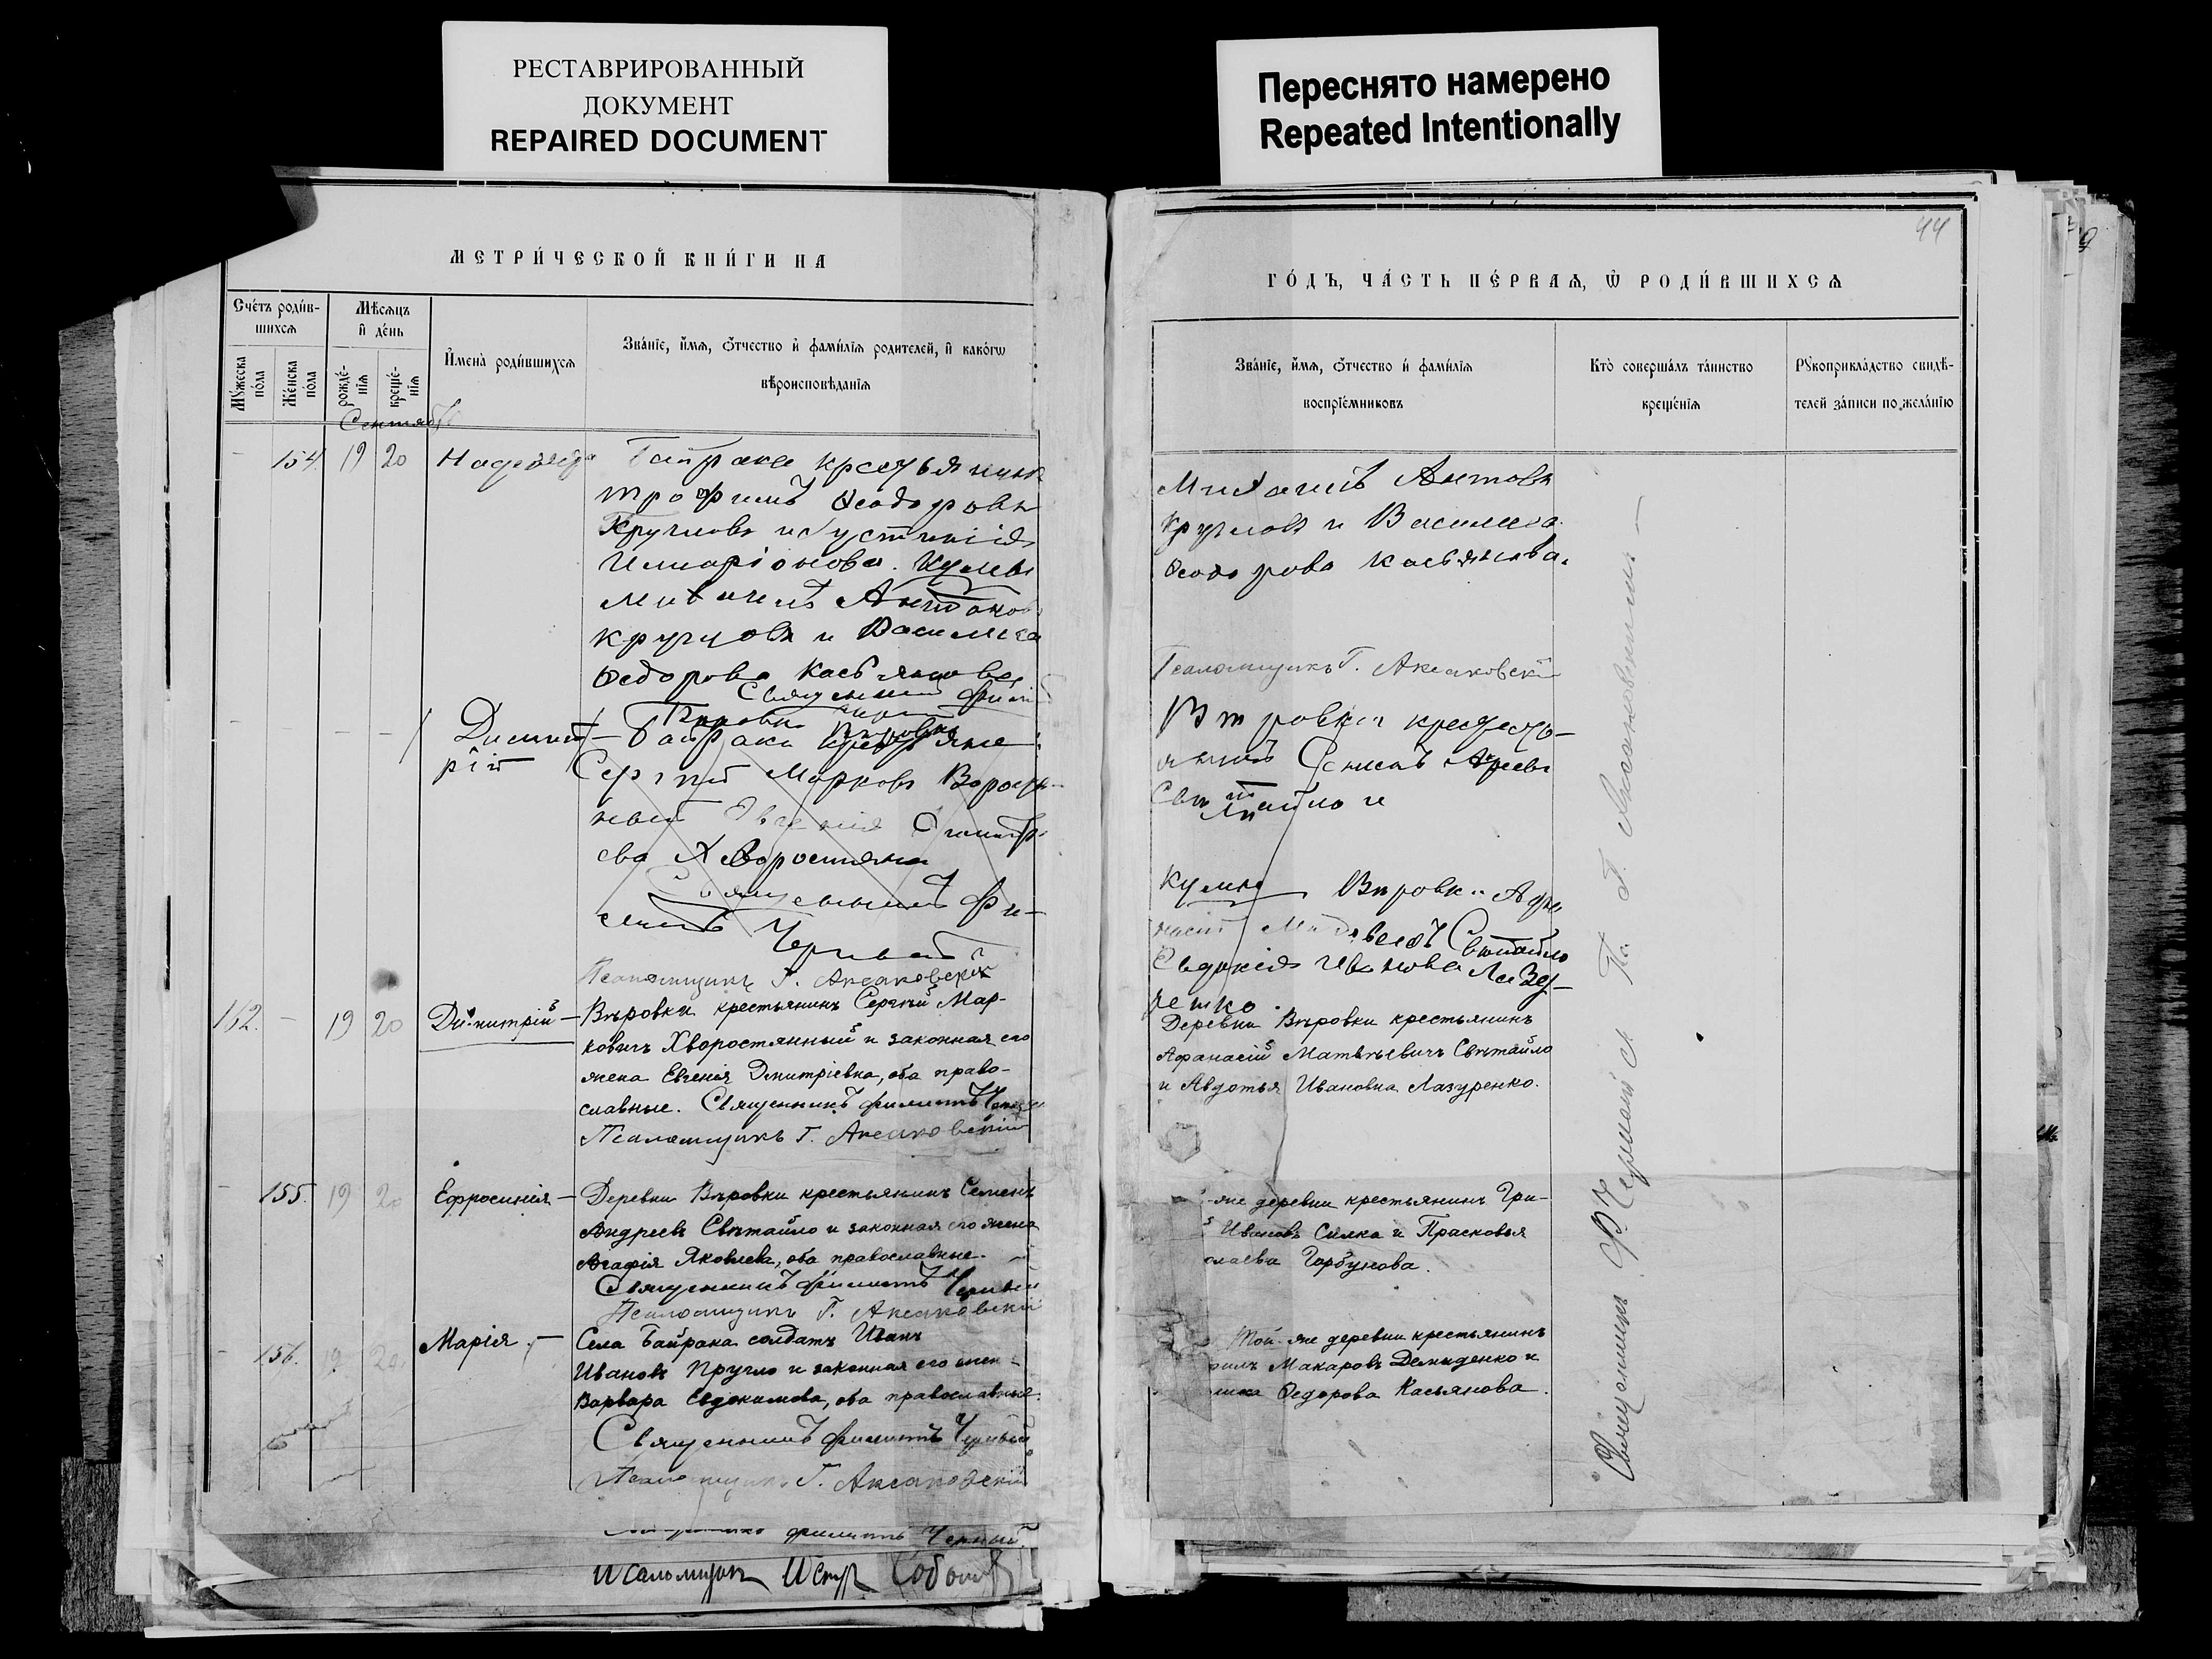 РЕСТАВРИРОВАННЫЙ
ДОКУМЕНТ
REPAIRED DOCUMENT
Переснято намерено
Repeated Intentionally
МЕТРИ́ЧЕСКОЙ КНИ́ГИ НА
Сче́тъ роди́в-
шихсѧ
Мѣ́сѧцъ
и҆ де́нь
Му́жеска
по́ла
Же́нска
по́ла
рожде́-
нїѧ
креще́-
нїѧ
И҆мена̀ роди́вшихсѧ
Зва́нїе, и҆́мѧ, ѻ҆́тчество и҆ фами́лїѧ роди́телей, и҆ како́гѡ
вѣроисповѣ́данїѧ
Сентябр
154 19 20 Надежда
Байрака крестьянинъ
Трофимъ Ѳеодоровъ
Кругловъ и Устинія
Иларіонова. Кумы
Михаилъ Антоновъ
Кругловъ и Василиса
Ѳедорова Касьянова
Священникъ Филиппъ
Димит-
рій
Байрака крестьяне
Сергій Марковъ Хворостян-
ный Евгенія Дмитр
ева Хворостяна
Священникъ Фи-
липпъ Черный
Псаломщикъ Г. Аксаковскій
162. - 19 20 Димитрій -
Вѣровки крестьянинъ Сергѣй Мар-
ковичъ Хворостянный и законная его
жена Евгенія Дмитріевна, оба право-
славные. Священникъ Филиппъ Черный
Псаломщикъ Г. Аксаковскій
- 155. 19 20 Ефросинія -
Деревни Вѣровки крестьянинъ Семенъ
Андреевъ Свѣтайло и законная его жена
Агафія Яковлева, оба православные.
Священникъ Филиппъ Черный
Псаломщикъ Г. Аксаковскій
- 156. 19 20 Марія. -
Села Байрака солдатъ Иванъ
Ивановъ Кругло и законная его жен-
Варвара Евдокимова, оба православные.
Священникъ Филиппъ Черный
Псаломщикъ Г. Аксаковскій
Филиппъ Черный
Псаломщикъ Петръ
44
ГО́ДЪ, ЧА́СТЬ ПЕ́РВАѦ, Ѡ҆ РОДИ́ВШИХСѦ
Зва́нїе, и҆́мѧ, ѻ҆́тчество и҆ фами́лїѧ
воспрїе́мниковъ
Кто̀ соверша́лъ та́инство
креще́нїѧ
Рꙋкоприкла́дство свидѣ́-
телей за́писи по жела́нїю
Михаилъ Антовъ
Кругловъ и Василиса
Ѳеодорова Касьянова.
Псаломщикъ Г. Аксаковскій
Вѣровки крестья-
нинъ Семенъ Андреевъ
Свѣтайло и
Кумы Вѣровки Афа
насій Матвѣевъ Свѣтайло
Евдокія Иванова Лазу-
ренко.
Деревни Вѣровки крестьянинъ
Афанасій Матвѣевичъ Свѣтайло
и Авдотья Ивановна Лазуренко.
-же деревни крестьянинъ Гри-
Ивановъ Силка и Прасковья
лаева Горбунова.
Той-же деревни крестьянинъ
Макаровъ Демиденко и
Ѳедорова Касьянова.
Священникъ Ф. Черный съ Пс. Г. Аксаковскимъ -